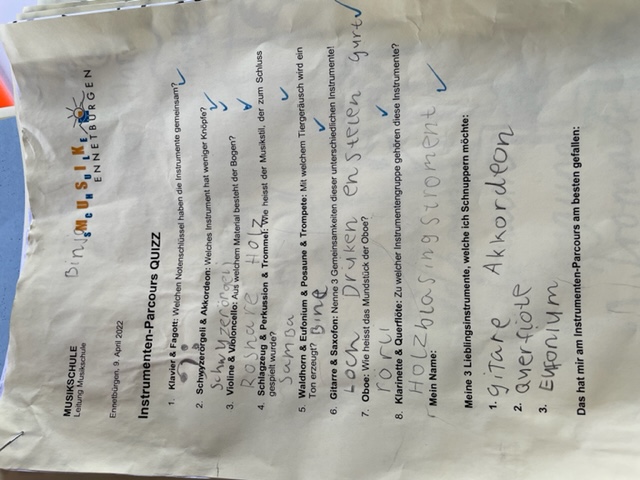 MUSIKSCHULE
Leitung Musikschule
MUSIK
SCHULE
ENNETBÜRGEN
Ennetbürgen, 9. April 2022
Instrumenten-Parcours QUIZZ
1. Klavier & Fagott: Welchen Notenschlüssel haben die Instrumente gemeinsam?
2. Schwyzerörgeli & Akkordeon: Welches Instrument hat weniger Knöpfe?
Schwyzerörgeli
3. Violine & Violoncello: Aus welchem Material besteht der Bogen?
Roshare Holz
4. Schlagzeug & Perkussion & Trommel: Wie heisst der Musikstil, der zum Schluss
gespielt wurde?
Samba
5. Waldhorn & Eufonium & Posaune & Trompete: Mit welchem Tiergeräusch wird ein
Ton erzeugt? Bine
6. Gitarre & Saxofon: Nenne 3 Gemeinsamkeiten dieser unterschiedlichen Instrumente!
Loch Druken enstelen gurt
7. Oboe: Wie heisst das Mundstück der Oboe?
rörli
8. Klarinette & Querflöte: Zu welcher Instrumentengruppe gehören diese Instrumente?
Holzblasingstroment
Mein Name:
Meine 3 Lieblingsinstrumente, welche ich Schnuppern möchte:
1. gitare Akkordeon
2. Querflöte
3. Euponium
Das hat mir am Instrumenten-Parcours am besten gefallen: